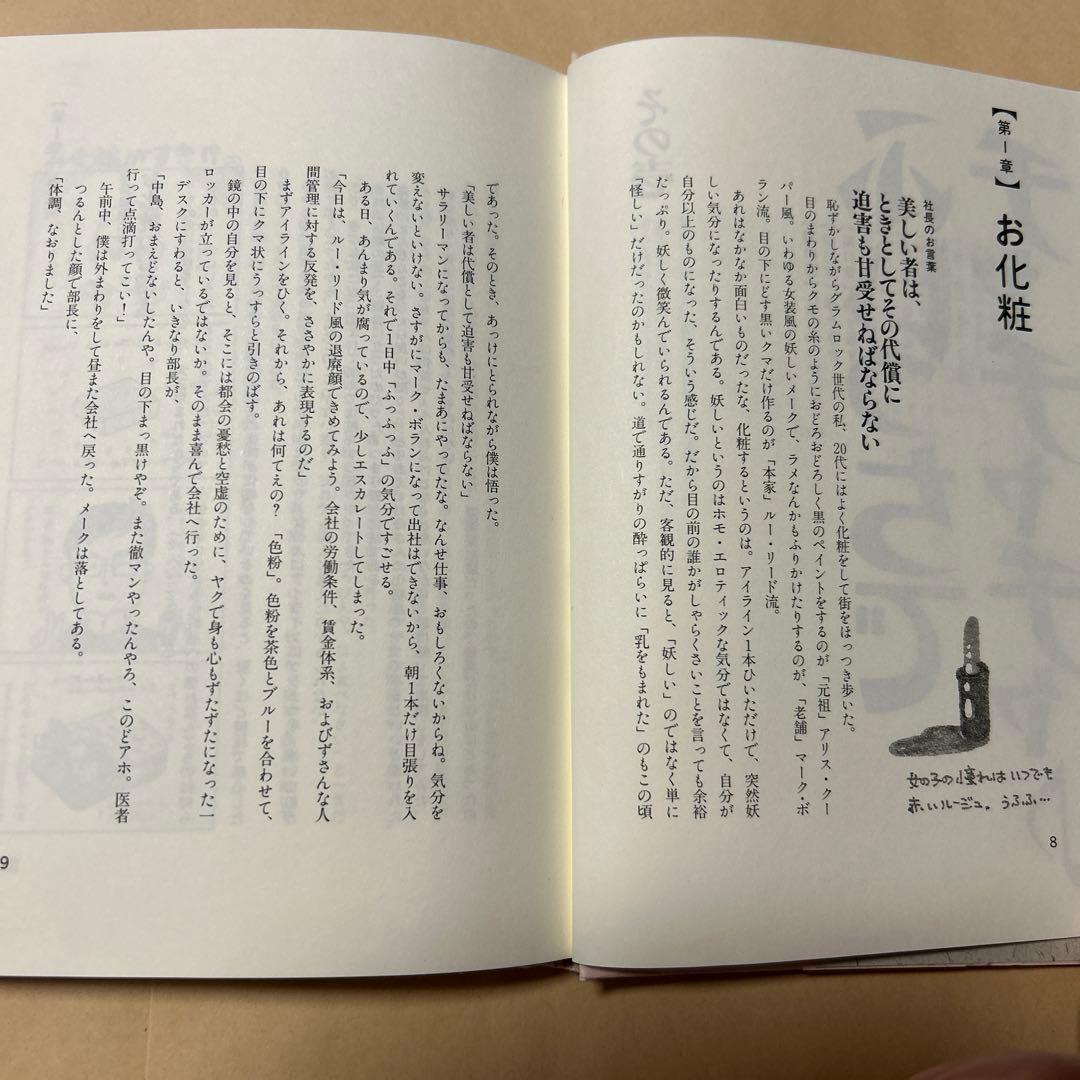 【第1章】お化粧
社長のお言葉
美しい者は、
ときとしてその代償に
迫害も甘受せねばならない
恥ずかしながらグラムロック世代の私、20代にはよく化粧をして街をほっつき歩いた。
目のまわりからクモの糸のようにおどろおどろしく黒のペイントをするのが「元祖」アリス・クー
パー風。いわゆる女装風の妖しいメークで、ラメなんかもふりかけたりするのが、「老舗」マーク・ボ
ラン流。目の下にどす黒いクマだけ作るのが「本家」ルー・リード流。
あれはなかなか面白いものだったな、化粧するというのは。アイライン1本ひいただけで、突然妖
しい気分になったりするんである。妖しいというのはホモ・エロティックな気分ではなくて、自分が
自分以上のものになった、そういう感じだ。だから目の前の誰かがしゃらくさいことを言っても余裕
たっぷり。妖しく微笑んでいられるんである。ただ、客観的に見ると、「妖しい」のではなく単に
「怪しい」だけだったのかもしれない。道で通りすがりの酔っぱらいに「乳をもまれた」のもこの頃
女の子の憧れはいつでも
赤いルージュ。うふふ…
8
であった。そのとき、あっけにとられながら僕は悟った。
「美しい者は代償として迫害も甘受せねばならない」
サラリーマンになってからも、たまあにやってたな。なんせ仕事、おもしろくないからね。気分を
変えないといけない。さすがにマーク・ボランになって出社はできないから、朝1本だけ目張りを入
れていくんである。それで1日中「ふっふっふ」の気分ですごせる。
ある日、あんまり気が腐っているので、少しエスカレートしてしまった。
「今日は、ルー・リード風の退廃顔できめてみよう。会社の労働条件、賃金体系、およびずさんな人
間管理に対する反発を、ささやかに表現するのだ」
まずアイラインをひく。それから、あれは何てえの？「色粉」。色粉を茶色とブルーを合わせて、
目の下にクマ状にうっすらと引きのばす。
鏡の中の自分を見ると、そこには都会の憂愁と空虚のために、ヤクで身も心もずたずたになった一
ロッカーが立っているではないか。そのまま喜んで会社へ行った。
デスクにすわると、いきなり部長が、
「中島、おまえどないしたんや。目の下まっ黒けやぞ。また徹マンやったんやろ、このどアホ。医者
行って点滴打ってこい！」
午前中、僕は外まわりをして昼また会社へ戻った。メークは落としてある。
つるんとした顔で部長に、
「体調、なおりました」
9